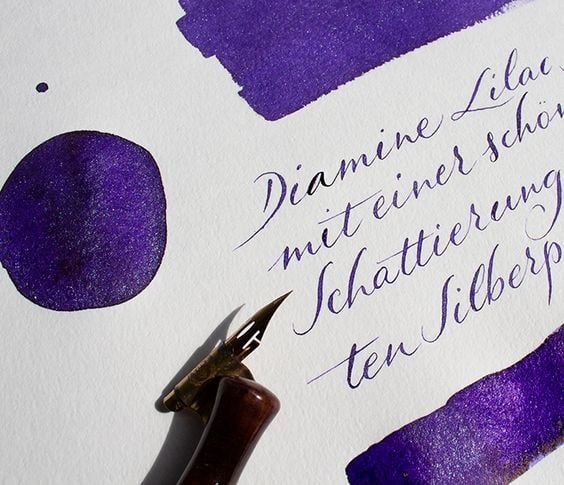 Diamine Lilac
mit einer schön
Schattierung
ten Silberp